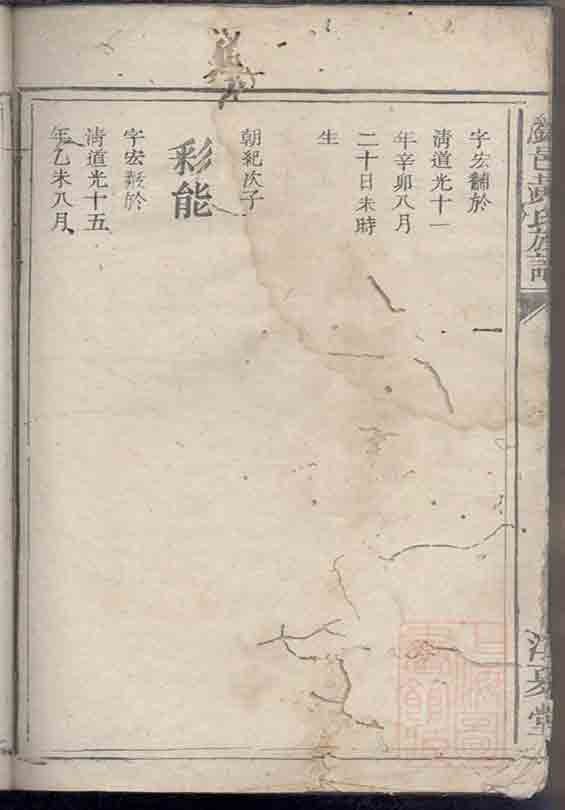 邑黃氏族譜
江夏堂
字宏輔於
清道光十一
年辛卯八月
二十日未時
生
朝紀次子
彩能
字宏於
清道光十五
年乙未八月